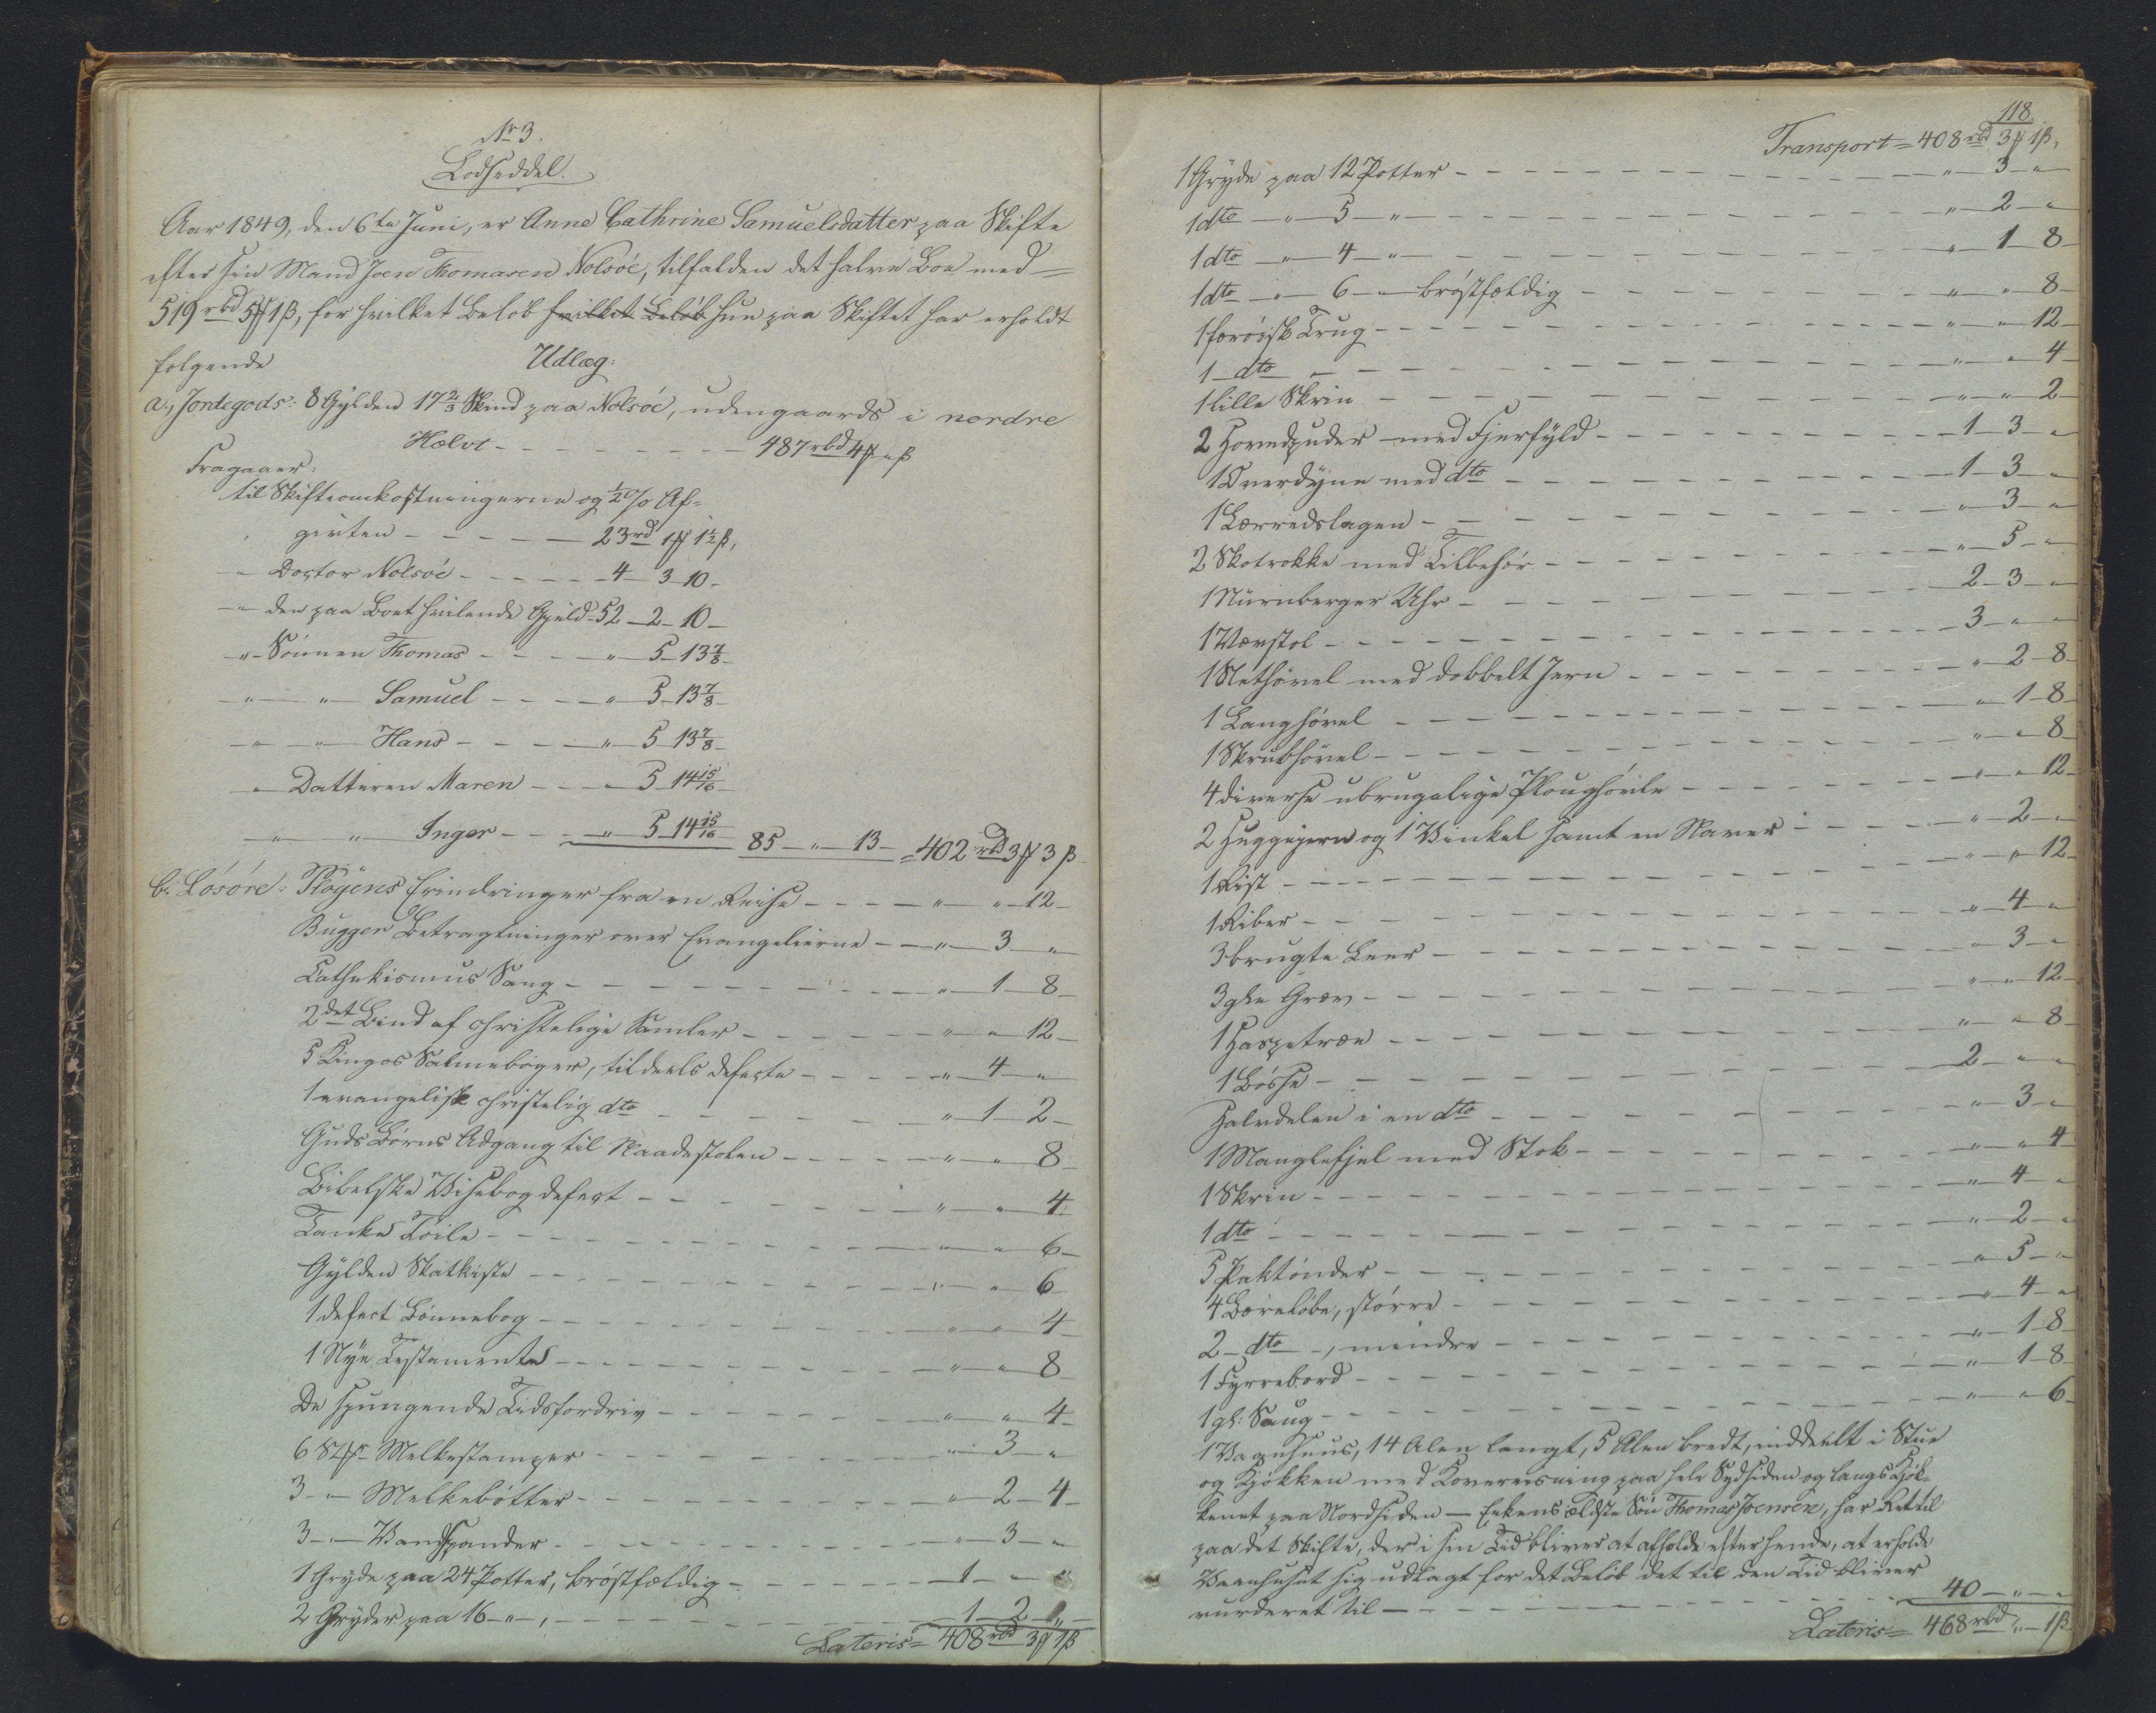 No 3.
Lodseddel.
Aar 1849, den 6te Juni, er Anne Cathrine Samuelsdatter paa Skifte
efter sin Mand Joen Thomasen Nolsöe, tilfalden det halve Boe med =
519 rbd 5 ℔ 1 ß, for hvilket Beløb hvilket Beløb hun paa Skiftet har erholdt
følgende Udlæg:
a., Jordegods: 8 Gylden 17 2/3 Skind paa Nolsöe, udengaards i nordre
Hælvt - - - 487 rbd 4 ℔ " ß
Fragaaer:
til Skifteomkostningerne og 1/2 % Af=
giften - - - 23 rd 1 ℔ 1 1/2 ß,
" Doctor Nolsöe - - - 4 - 3 - 10 -
" den paa Boet hvilende Gjæld - 52 - 2 - 10 -
" Sönnen Thomas - - - " - 5 - 13 7/8 -
" " Samuel - - - " - 5 - 13 7/8 -
" " Hans - - - " - 5 - 13 7/8 -
" Datteren Maren - - - " - 5 - 14 15/16 -
" " Inger - - - " - 5 - 14 15/16 - 85 - " - 13 - = 402 rbd 3 ℔ 3 ß
b: Lösöre: Plöyens Erindringer fra en Reise - - - " - " - 12 -
Bugges Betragtninger over Evangelierne - - - " - 3 - "
Cathekismus Sang - - - " - 1 - 8 -
2det Bind af christelige Samler - - - " - " - 12 -
5 Kingos Salmebøger, tildeels defecte - - - " - 4 - "
1 evangelisk christelig dto - - - " - 1 - 2 -
Guds Børns Adgang til Naadestolen - - - " - " - 8 -
Bibelske Visebog defect - - - " - " - 4 -
Tankes Töile - - - " - " - 6 -
Gylden Skatkiste - - - " - " - 6 -
1 defect Bönnebog - - - " - " - 4 -
1 Nye Testamente - - - " - " - 8 -
De syngende Tidsfordriv - - - " - " - 4 -
6 Stkr Melkestamper - - - " - 3 - "
3 - " - Melkebötter - - - " - 2 - 4 -
3 - " - Vandspander - - - " - 3 - "
1 Gryde paa 24 Potter, bröstfældig - - - 1 - " - "
2 Gryder paa 16 - " -, - - - 1 - 2 - "
Lateris = 408 rbd 3 ℔ 1 ß
118.
Transport = 408 rbd 3 ℔ 1 ß,
1 Gryde paa 12 Potter - - - " - 3 - "
1 dto - " - 5 - " - - - " - 2 - "
1 dto - " - 4 - " - - - " - 1 - 8 -
1 dto - " - 6 - " - bröstfældig - - - " - " - 8 -
1 færöisk Trug - - - " - " - 12 -
1 - dto - - - " - " - 4 -
1 lille Skrin - - - " - " - 2 -
2 Hovedpuder med Fjerfyld - - - 1 - 3 - "
1 Overdyne med dto - - - 1 - 3 - "
1 Lærredslagen - - - " - 3 - "
2 Skotrokke med Tilbehör - - - " - 5 - "
1 Nürnberger Uhr - - - 2 - 3 - "
1 Vævstol - - - 3 - " - "
1 Slethövel med dobbelt Jern - - - " - 2 - 8 -
1 Langhövel - - - " - 1 - 8 -
1 Skrubhövel - - - " - " - 8 -
4 diverse ubrugelige Plöughövle - - - " - " - 12 -
2 Huggejern og 1 Vinkel samt en Naver - - - " - 2 - "
1 Rist - - - " - " - 12 -
1 River - - - " - 4 - "
3 brugte Leer - - - " - 3 - "
3 gle Grev - - - " - " - 12 -
1 Haspetræe - - - " - " - 8 -
1 Bösse - - - 2 - " - "
Halvdelen i en dto - - - " - 3 - "
1 Manglefjel med Stok - - - " - " - 4
1 Skrin - - - " - 4 - "
1 dto - - - " - 2 - "
5 Paktönder - - - " - 5 - "
4 Bæreløbe, större - - - " - 4 - "
2 - dto -, mindre - - - " - 1 - 8 -
1 Fyrrebord - - - " - 1 - 8 -
1 gl: Saug - - - " - " - 6 -
1 Vaanhuus, 14 Alen langt, 5 Alen bredt, inddeelt i Stue
og Kjøkken med Kovereisning paa hele Sydsiden og langs Kjök=
kenet paa Nordsiden — Enkens ældste Sön Thomas Joensen, har Ret til
paa det Skifte, der i sin Tid bliver at afholde efter hende, at erholde
Vaanhuset sig udlagt for det Beløb det til den Tid bliver
vurderet til - - - 40 - " - "
Lateris = 468 rbd " - 1 ß